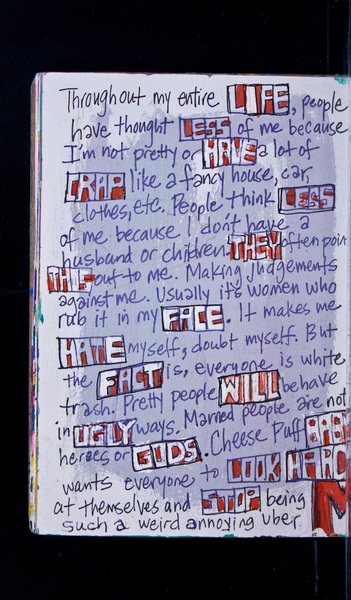 Throughout my entire LIFE, people
have thought LESS of me because
I'm not pretty or HAVE a lot of
CRAP like a fancy house, car,
clothes, etc. People think LESS
of me because I don't have a
husband or children. THEY often poin
THIS out to me. Making judgements
against me. Usually it's women who
rub it in my FACE. It makes me
HATE myself, doubt myself. But
the FACT is, everyone is white
trash. Pretty people WILL behave
in UGLY ways. Married people are not
heroes or GODS. Cheese Puff
wants everyone to LOOK HARD
at themselves and STOP being
such a weird annoying uber